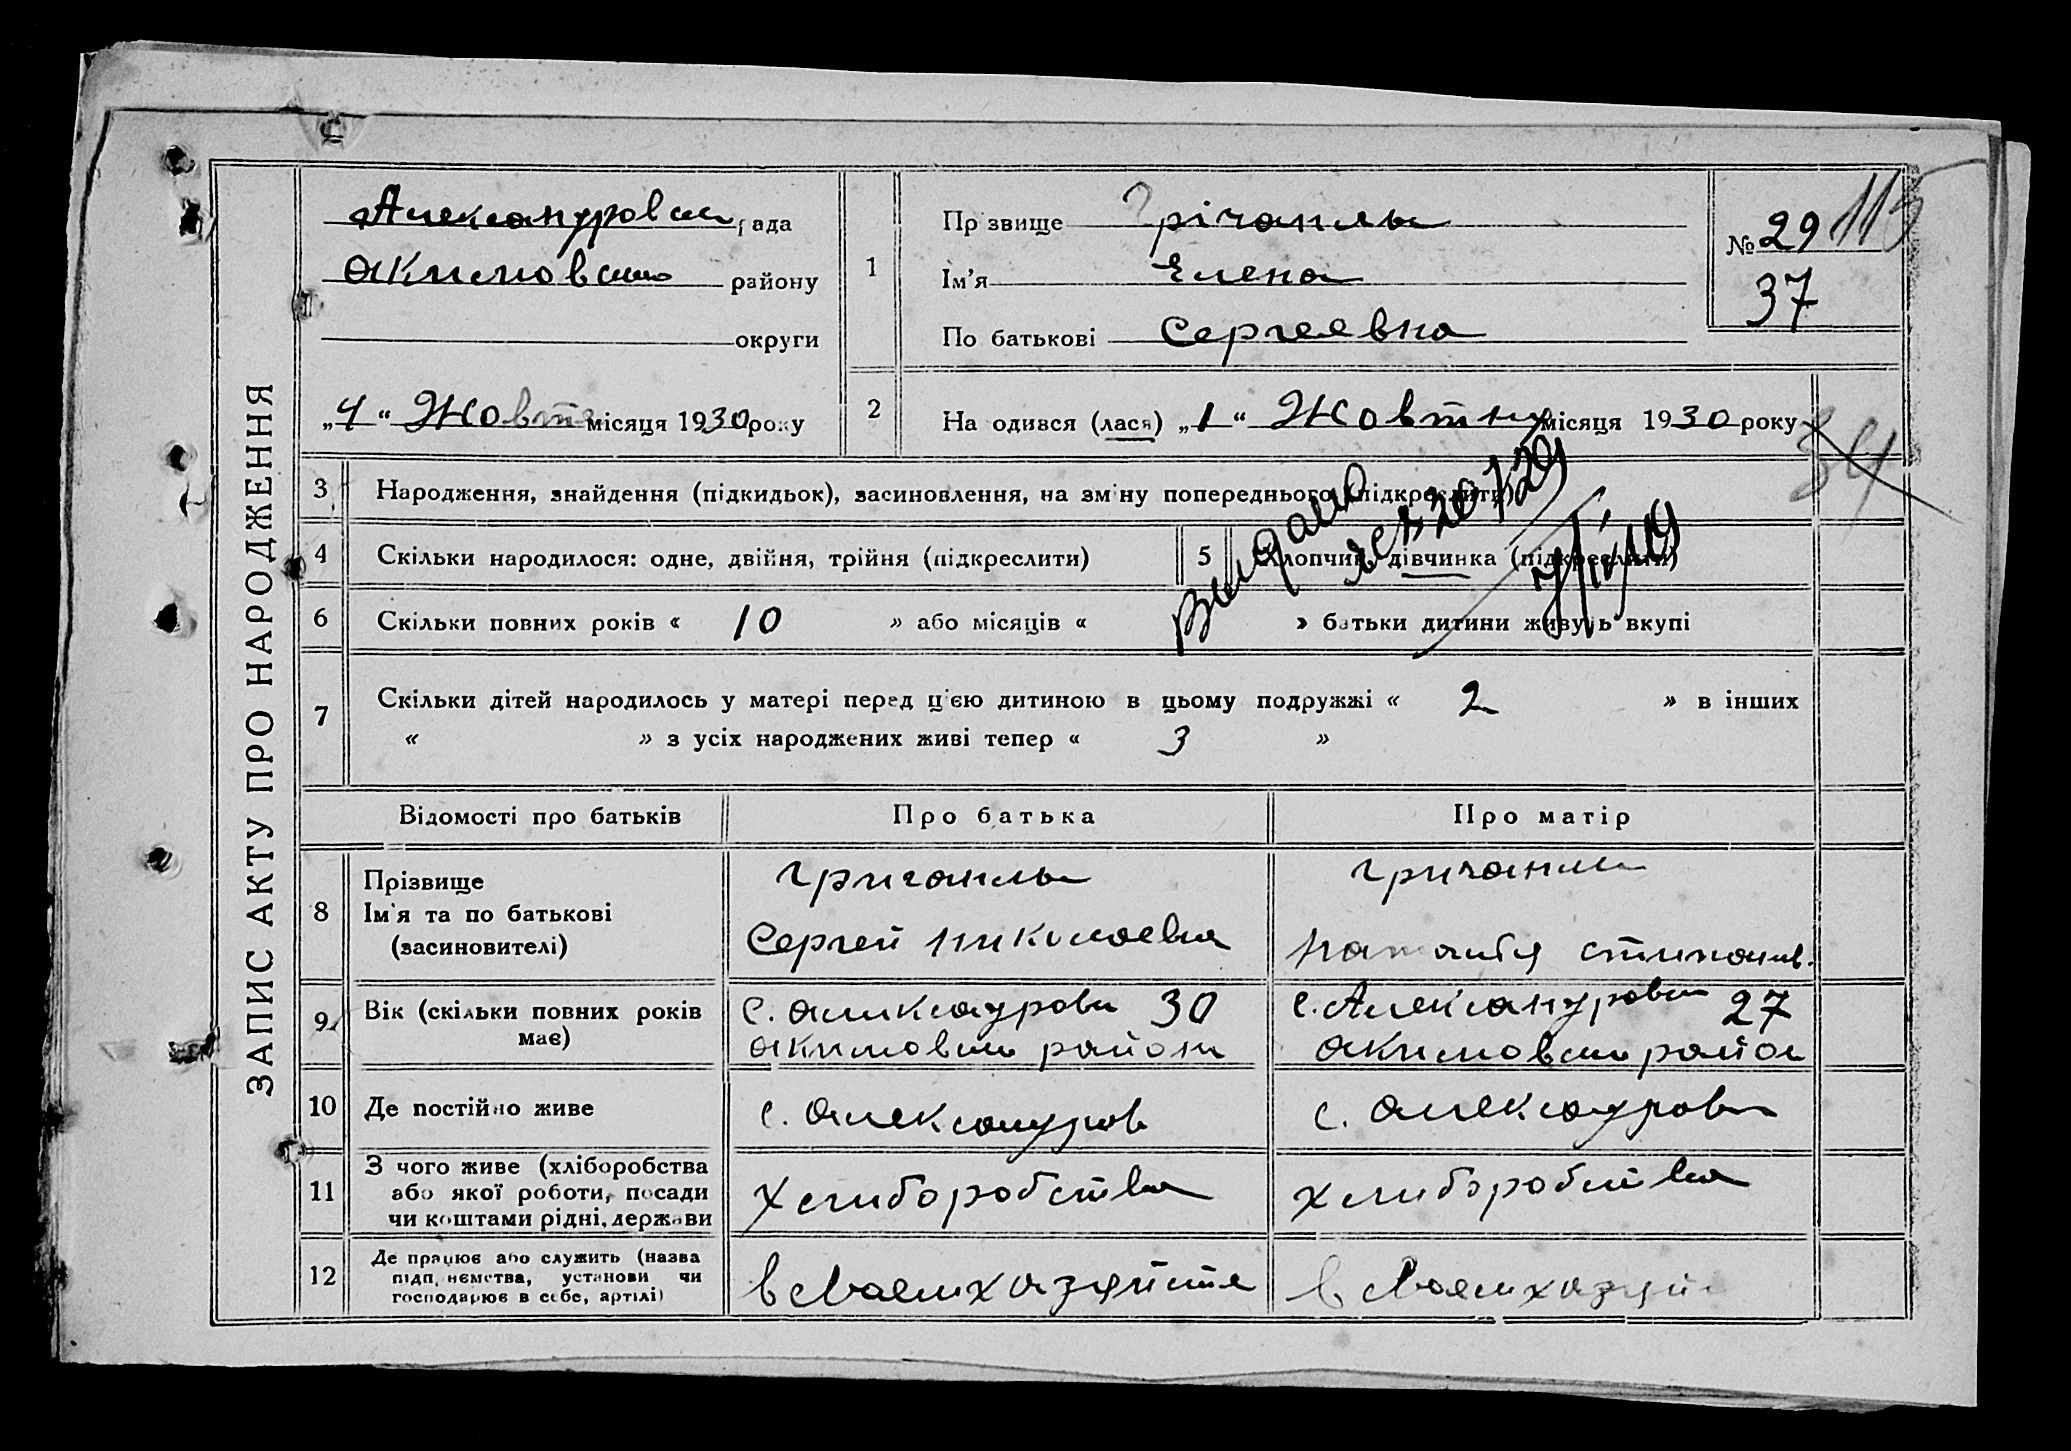 ЗАПИС АКТУ ПРО НАРОДЖЕННЯ
Александровск рада
Акимовсько району
округи
„4“ Жовтн місяця 1930 року
1
Прізвище
Ім'я Елена
По батькові Сергеевна
№ 29 115
37
2
Народився (лася) „1“ Жовтня місяця 1930 року
34
3 Народження, знайдення (підкидьок), засиновлення, на зміну попереднього (підкреслити)
4 Скільки народилося: одне, двійня, трійня (підкреслити)
5 Хлопчик, дівчинка (підкреслити)
6 Скільки повних років « 10 » або місяців « » батьки дитини живуть вкупі
7 Скільки дітей народилось у матері перед цією дитиною в цьому подружжі « 2 » в інших
« » з усіх народжених живі тепер « 3 »
Відомості про батьків
Про батька
Про матір
8
Прізвище
Ім'я та по батькові
(засиновителі)
Сергей Николаевич
9
Вік (скільки повних років
має)
30
Акимовск район
27
Акимовск район
10 Де постійно живе
с. Александров
с. Александров
11
З чого живе (хліборобства
або якої роботи, посади
чи коштами рідні, держави
Хлиборобства
Хлиборобства
12
Де працює або служить (назва
підприємства, установи чи
господарює в себе, артілі)
в своем хазяйстве
в своем хазяй